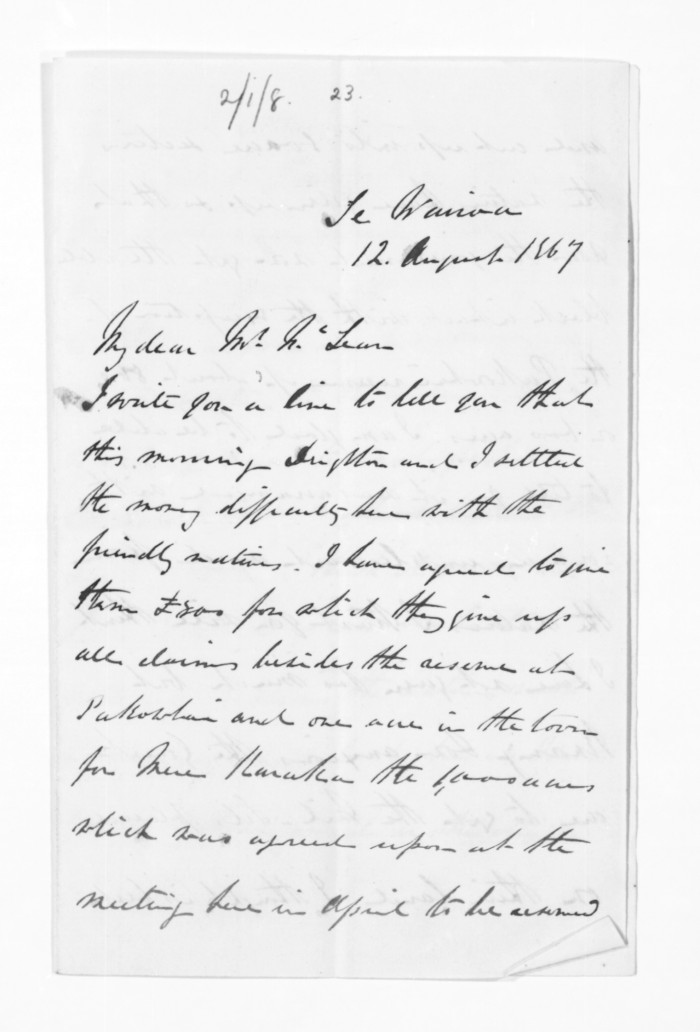 2/1/8. 23.
Te Wairoa
12. August 1867
My dear Mr. McLean
I write you a line to tell you that
this morning Deighton and I settled
the money difficulty here with the
friendly natives. I have agreed to give
them £800 for which they give up
all claims besides the reserve at
and one acre in the town
for Mere Karaka the 1,000 acres
which was agreed upon at the
meeting here in April to be reserved